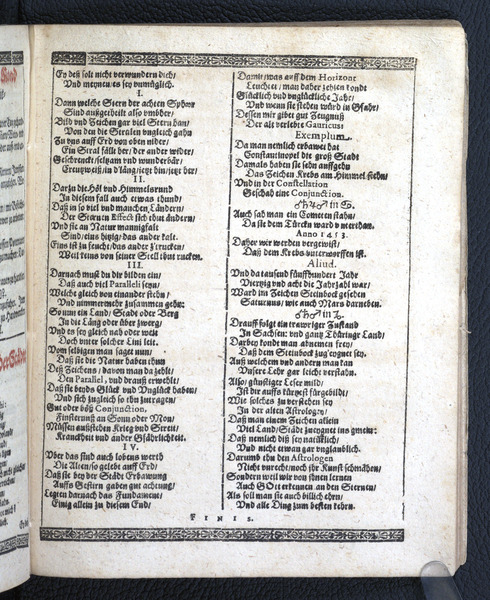 Ey deß solt nicht verwundern dich/
Und meynen/es sey unmüglich.
I.
Dann welche Stern der achten Sphær
Sind außgetheilt also umbher/
Bild und Zeichen gar viel Stern han/
Von den die Stralen ungleich gahn
Zu uns auff Erd von oben nider/
Ein Stral fällt her/ der ander wider/
Geschrenckt/seltzam und wunderbär/
Creutzweiß/in d'läng/jetzt hin/jetzt her/
II.
Darzu die Höl und Himmelsrund
In diesem fall auch etwas thund/
Daß in so viel und manchen Ländern/
Der Sternen Effect sich thut ändern/
Und sie an Natur mannigfalt
Sind/eins hitzig/das ander kalt.
Eins ist zu feucht/das ander z'trucken/
Weil keins von seiner Stell thut rucken.
III.
Darnach must du dir bilden ein/
Daß auch viel Paralleli seyn/
Welche gleich von einander stehn/
Und nimmermehr zusammen gehn:
So nun ein Land/ Stadt oder Berg
In die Läng oder über zwerg/
Und es sey gleich nah oder weit
Doch unter solcher Lini leit.
Vom selbigen man saget nun/
Daß sie die Natur haben thun
Deß Zeichens / davon man da zehlt/
Den Parallel, und drauß erwehlt/
Daß sie beyds Glück und Unglück haben/
Und sich zugleich so thu zutragen/
Gut oder böß Conjunction,
Finsternuß an Sonn oder Mon/
Müssen außstehen Krieg und Streit/
Kranckheit und ander Gfährlichkeit.
IV.
Uber das sind auch lobens werth
Die Alten/so gelebt auff Erd/
Daß sie bey der Städt Erbawung
Auffs Gestirn gaben gut achtung/
Legten darnach das Fundament/
Einig allein zu diesem End/
Damit/was auff dem Horizont
Leuchtet / man daher zehlen kondt
Glücklich und unglückliche Jahr/
Und wenn sie stehen würd in Gfahr/
Dessen mir gibet gut Zeugnuß
Der alt verlebte Gauricus:
Exemplum.
Da man nemlich erbawet hat
Constantinopel die groß Stadt
Damals haben sie sehn auffgehn
Das Zeichen Krebs am Himmel stehn/
Und in der Constellation
Geschah eine Conjunction.
♂♄☌♂ in ♋.
Auch sah man ein Cometen stahn/
Da sie dem Türcken ward unterthan.
Anno 1453.
Daher wir werden vergewist/
Daß dem Krebs unterworffen ist.
Aliud.
Und da tausend fünffhundert Jahr
Viertzig und acht die Jahrzahl war/
Ward im Zeichen Steinbock gesehen
Saturnus/ wie auch Mars darneben.
♂♄♂ in ♑.
Drauff folgt ein trawriger Zustand
In Sachsen/ und gantz Thüringr Land/
Darbey kondt man abnemen frey/
Daß dem Steinbock zug'eygnet sey.
Auß welchem und andern man kan
Unsere Lehr gar leicht verstahn.
Also/ günstiger Leser mild/
Ist dir auffs kürtzest fürgebildt/
Wie solches zu verstehen sey
In der alten Astrologey/
Daß man einem Zeichen allein
Viel Land/ Städt zueygnet ins gmein:
Daß nemlich diß sey natürlich/
Und nicht etwan gar unglaublich.
Darumb thu den Astrologen
Nicht veracht/noch ihr Kunst schmähen/
Sondern weil wir von ihnen lernen
Auch GOtt erkennen an den Sternen/
Als soll man sie auch billich ehrn/
Und alle Ding zum besten kehrn.
FINIS.